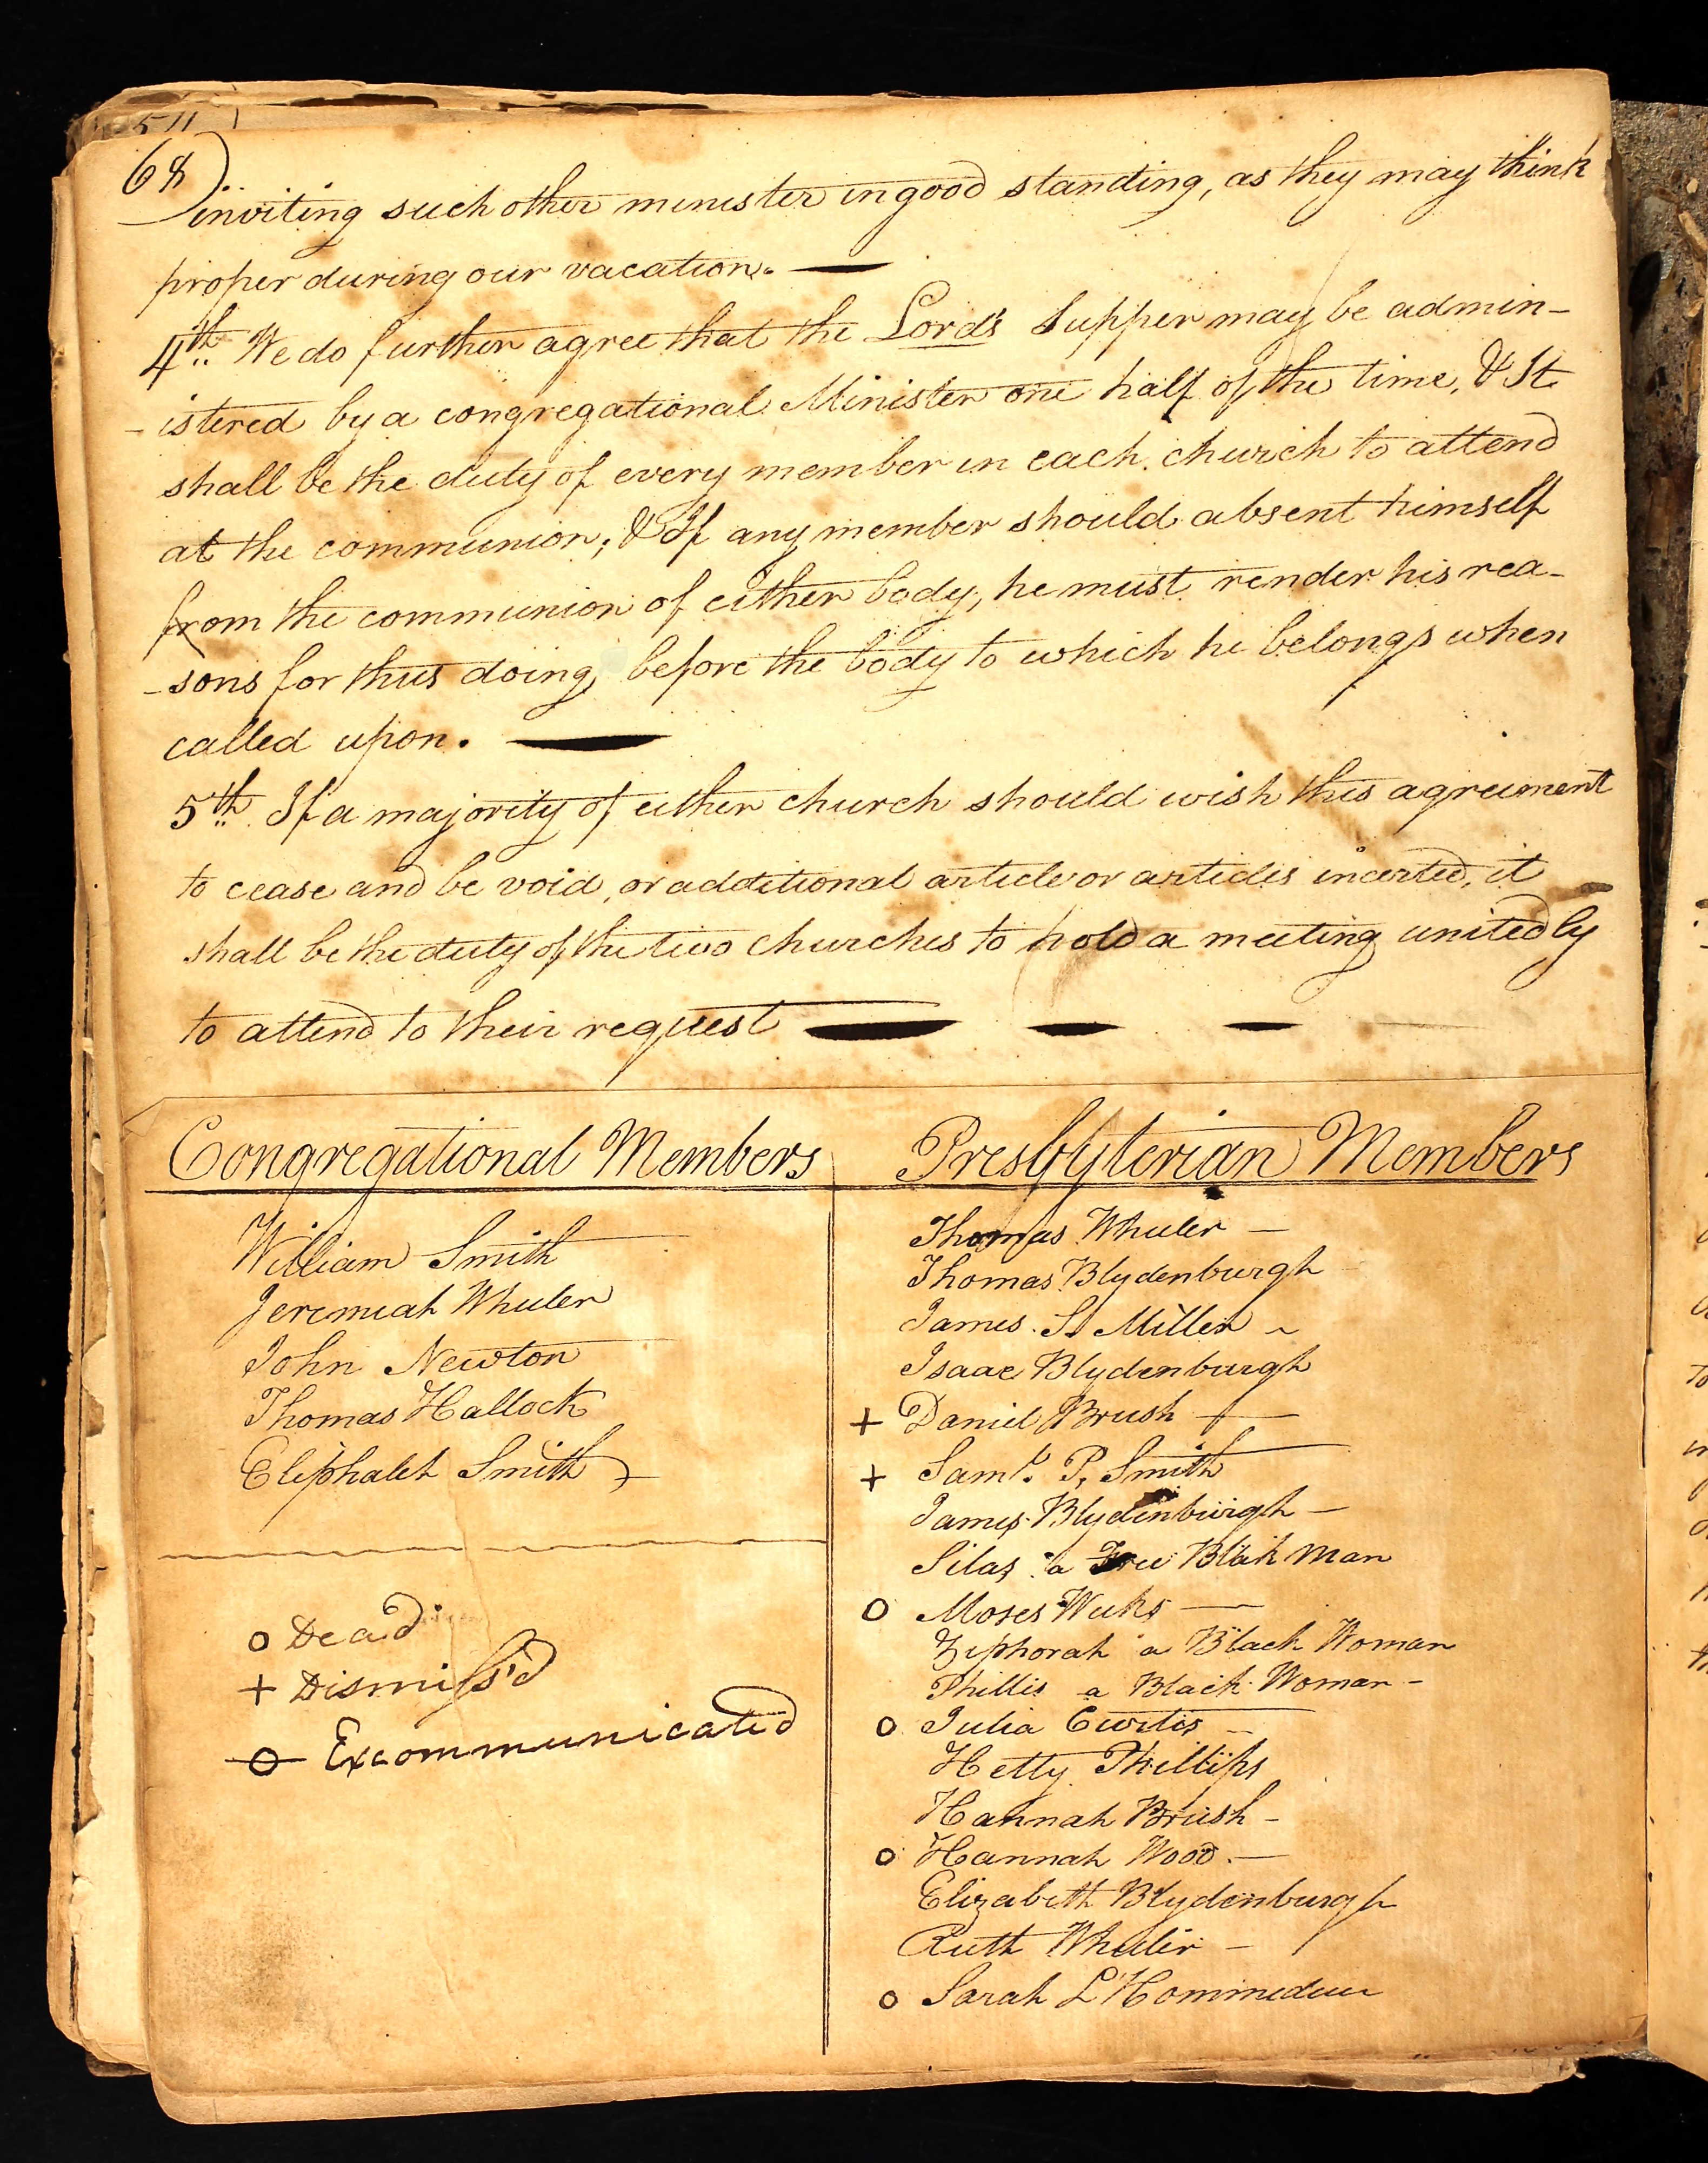 68)
inviting such other minister in good standing, as they may think
proper during our vacation. —
4th.. We do further agree that the Lord's Supper may be admin-
- istered by a congregational Minister one half of the time, & It
shall be the duty of every member in each church to attend
at the communion; & If any member should absent himself
from the communion of either body, he must render his rea-
- sons for thus doing, before the body to which he belongs when
called upon. —
5th.. If a majority of either church should wish this agreement
to cease and be void, or additional article or articles incerted, it
shall be the duty of the two churches to hold a meeting unitedly
to attend to their request — — —
Congregational Members
William Smith
Jeremiah Wheeler
John Newton
Thomas Hallock
Eliphalet Smith +
o Dead
+ Dismiss'd
-o- Excommunicated
Presbyterian Members
Thomas Wheeler —
Thomas Blydenburgh
James S. Miller ~
Isaac Blydenburgh
+ Daniel Brush —
+ Saml. P. Smith
James Blydenburgh —
Silas a Free Blak Man
o Moses Weeks —
Ziphorah a Black Woman
Phillis a Black Woman -
o Julia Curtis —
Hetty Phillips
Hannah Brush -
o Hannah Wood. —
Elizabeth Blydenburgh
Ruth Wheeler -
o Sarah L'Hommedieu